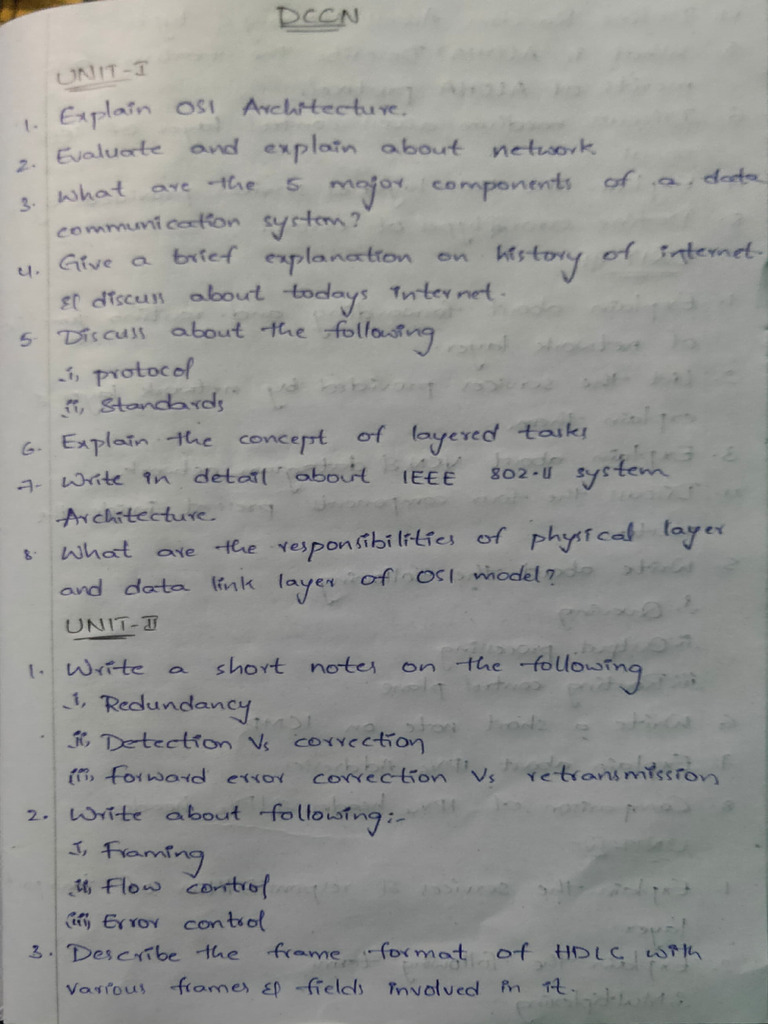 DCCN
UNIT-I
1. Explain OSI Architecture.
2. Evaluate and explain about network
3. What are the 5 major components of a data
communication system?
4. Give a brief explanation on history of internet
& discuss about todays internet.
5 Discuss about the following
i, protocol
ii, Standards
6. Explain the concept of layered tasks
7. Write in detail about IEEE 802.11 system
Architecture.
8. What are the responsibilities of physical layer
and data link layer of OSI model?
UNIT-II
1. Write a short notes on the following
i, Redundancy
ii, Detection Vs correction
iii, forward error correction Vs retransmission
2. Write about following:-
I, Framing
ii, Flow control
iii, Error control
3. Describe the frame format of HDLC with
various frames & fields involved in it.